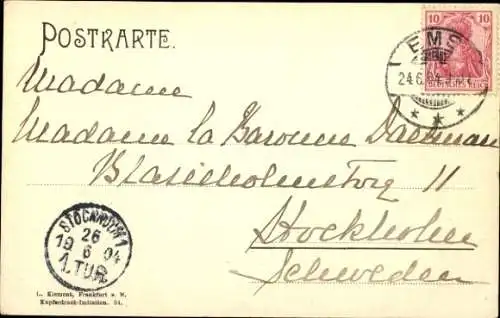 POSTKARTE.
10 10
EMS
24.6.04
DEUTSCHES REICH
Madame
Madame la Baronne Dachman
Blasieholmstorg 11
Stockholm
Schweden
STOCKHOLM 1
26
19 6 04
1.TUR.
L. Klement, Frankfurt a. M.
Kupferdruck-Imitation. 34.